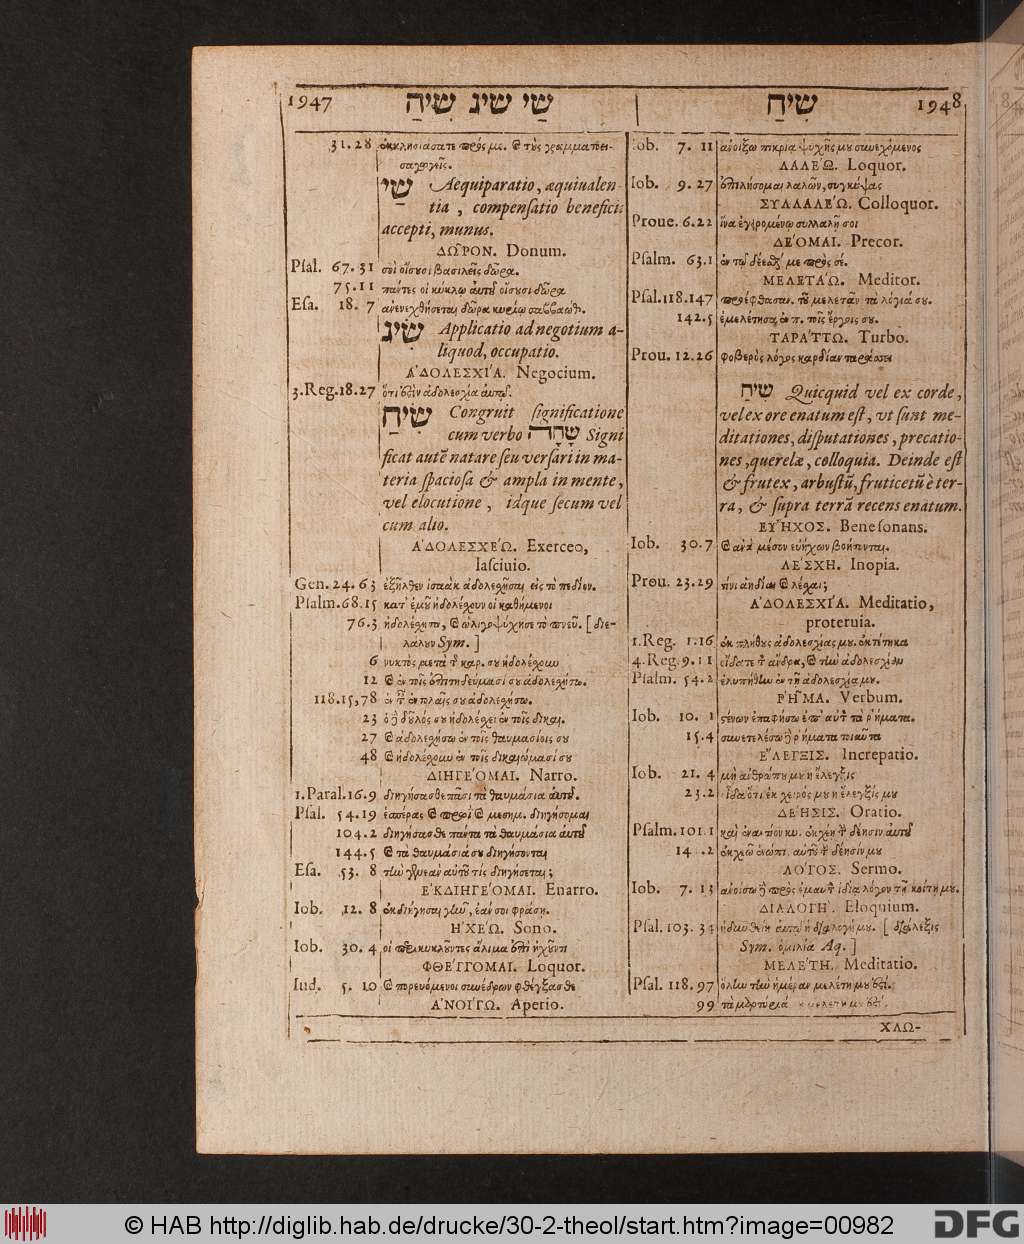 1947 שַׁי שִׂיג שִׂיחַ
שִׂיחַ 1948
31.28 ἐκκλησιάσατε πρός με. & τοὺς γραμματοει-
σαγωγεῖς.
שַׁי Aequiparatio, æquiualen-
tia, compensatio beneficii
accepti, munus.
ΔΩ͂ΡΟΝ. Donum.
Psal. 67.31 σοὶ οἴσουσι βασιλεῖς δῶρα.
75.11 πάντες οἱ κύκλω αὐτοῦ οἴσουσι δῶρα
Esa. 18.7 ἀνενεχθήσεται δῶρα κυρίῳ σαββαώθ.
שִׂיג Applicatio ad negotium a-
liquod, occupatio.
Ἀ´ΔΟΛΕΣΧΙ´Α. Negocium.
3.Reg.18.27 ὅτι ἐστὶν ἀδολεσχία αὐτοῦ.
שִׂיחַ Congruit significatione
cum verbo שָׂחָה Signi
ficat autē natare seu versari in ma-
teria spaciosa & ampla in mente,
vel elocutione, idque secum vel
cum alio.
Ἀ´ΔΟΛΕΣΧΕ´Ω. Exerceo,
lasciuio.
Gen.24.63 ἐξῆλθεν ἰσαὰκ ἀδολεσχῆσαι εἰς τὸ πεδίον.
Psalm.68.15 κατ᾽ ἐμοῦ ἠδολέσχουν οἱ καθήμενοι
76.3 ἠδολέσχησα, & ὠλιγοψύχησε τὸ πνεῦ. [διε-
λάλουν Sym.]
6 νυκτὸς μετὰ τ῀ καρ. ου ἠδολέσχουν
12 & ἐν τοῖς ἐπιτηδεύμασί σου ἀδολεσχήσω.
118.15,78 ἐν τ῀ ἐντολαῖς σου ἀδολεσχήσω.
23 ὁ δὲ δοῦλός σου ἠδολέσχει ἐν τοῖς δικαι.
27 & ἀδολεσχήσω ἐν τοῖς θαυμασίοις σου
48 & ἠδολέσχουν ἐν τοῖς δικαιώμασί σου
ΔΙΗΓΕ´ΟΜΑΙ. Narro.
1.Paral.16.9 διηγήσασθε πᾶσι τὰ θαυμάσια αὐτοῦ.
Psal. 54.19 ἑσπέρας & πρωῒ & μεσημ. διηγήσομαι
104.2 διηγήσασθε πάντα τὰ θαυμάσια αὐτοῦ
144.5 & τὰ θαυμάσιά σου διηγήσονται
Esa. 53.8 τὴν γενεὰν αὐτοῦ τίς διηγήσεται;
Ε᾽ΚΔΙΗΓΕ´ΟΜΑΙ. Enarro.
Iob. 12.8 ἐκδιήγησαι γῆν, ἐάν σοι φράσῃ.
Η᾽ΧΕ´Ω. Sono.
Iob. 30.4 οἱ περικυκλοῦντες ἄλιμα ἐπὶ ἠχοῦντι
ΦΘΕ´ΓΓΟΜΑΙ. Loquor.
Iud. 5.10 & πορευόμενοι συνέδρων φθέγξασθε
Ἀ´ΝΟΙ´ΓΩ. Aperio.
Iob. 7.11 ἀνοίξω πικρίᾳ ψυχῆς μου συνεχόμενος
ΛΑΛΕ´Ω. Loquor.
Iob. 9.27 ἐπιλήσομαι λαλῶν, συγκύψας
ΣΥΛΛΑΛΕ´Ω. Colloquor.
Proue.6.22 ἵνα ἐγειρομένῳ συλλαλῇ σοι
ΔΕ´ΟΜΑΙ. Precor.
Psalm. 63.1 ἐν τῷ δέεσθαί με πρὸς σέ.
ΜΕΛΕΤΑ´Ω. Meditor.
Psal.118.147 προέφθασαν. τοῦ μελετᾶν τὰ λόγιά σου.
142.5 ἐμελέτησα, ἐν π. τοῖς ἔργοις σου.
ΤΑΡΑ´ΤΤΩ. Turbo.
Prou. 12.26 φοβερὸς λόγος καρδίαν ταράσσει
שִׂיחַ Quicquid vel ex corde,
vel ex ore enatum est, vt sunt me-
ditationes, disputationes, precatio-
nes, querelæ, colloquia. Deinde est
& frutex, arbustū, fruticetū è ter-
ra, & supra terrā recens enatum.
ΕΥ῎ΗΧΟΣ. Benesonans.
Iob. 30.7 & ἀνὰ μέσον εὐήχων βοήσονται.
ΛΕ´ΣΧΗ. Inopia.
Prou. 23.29 τίνι ἀηδίαι & λέσχαι;
Ἀ´ΔΟΛΕΣΧΙ´Α. Meditatio,
proteruia.
1.Reg. 1.16 ἐκ πλήθους ἀδολεσχίας μου. ἐκτέτακα
4.Reg.9.11 οἴδατε τ῀ ἄνδρα, & τὴν ἀδολεσχίαν
Psalm. 54.2 ἐλυπήθην ἐν τῇ ἀδολεσχίᾳ μου.
Ρ῾Η͂ΜΑ. Verbum.
Iob. 10.1 στένων ἐπαφήσω ἐπ᾽ αὐτ῀ τὰ ῥήματα.
15.4 συνετελέσω δὲ ῥήματα τοιαῦτα
Ε῎ΛΕΓΞΙΣ. Increpatio.
Iob. 21.4 μὴ ἀνθρώπου μου ἡ ἔλεγξις
23.2 οἶδα ὅτι ἐκ χειρός μου ἡ ἔλεγξίς μου
ΔΕ´ΗΣΙΣ. Oratio.
Psalm.101.1 καὶ ἐναντίον κυ. ἐκχέῃ τ῀ δέησιν αὐτοῦ
14 .2 ἐκχεῶ ἐνώπι. αὐτοῦ τ῀ δέησίν μου
ΛΟ´ΓΟΣ. Sermo.
Iob. 7.13 ἀνοίσω δὲ πρὸς ἐμαυτ῀ ἰδίᾳ λόγον τῇ κοίτῃ μου.
ΔΙΑΛΟΓΗ´. Eloquium.
Psal.103.34 ἡδυνθείη αὐτῷ ἡ διαλογή μου. [διάλεξις
Sym. ὁμιλία Aq.]
ΜΕΛΕ´ΤΗ. Meditatio.
Psal. 118.97 ὅλην τὴν ἡμέραν μελέτη μου ἐστί.
99 τὰ μαρτύριά μελέτη μου ἐστί.
ΧΛΩ-
© HAB http://diglib.hab.de/drucke/30-2-theol/start.htm?image=00982
DFG